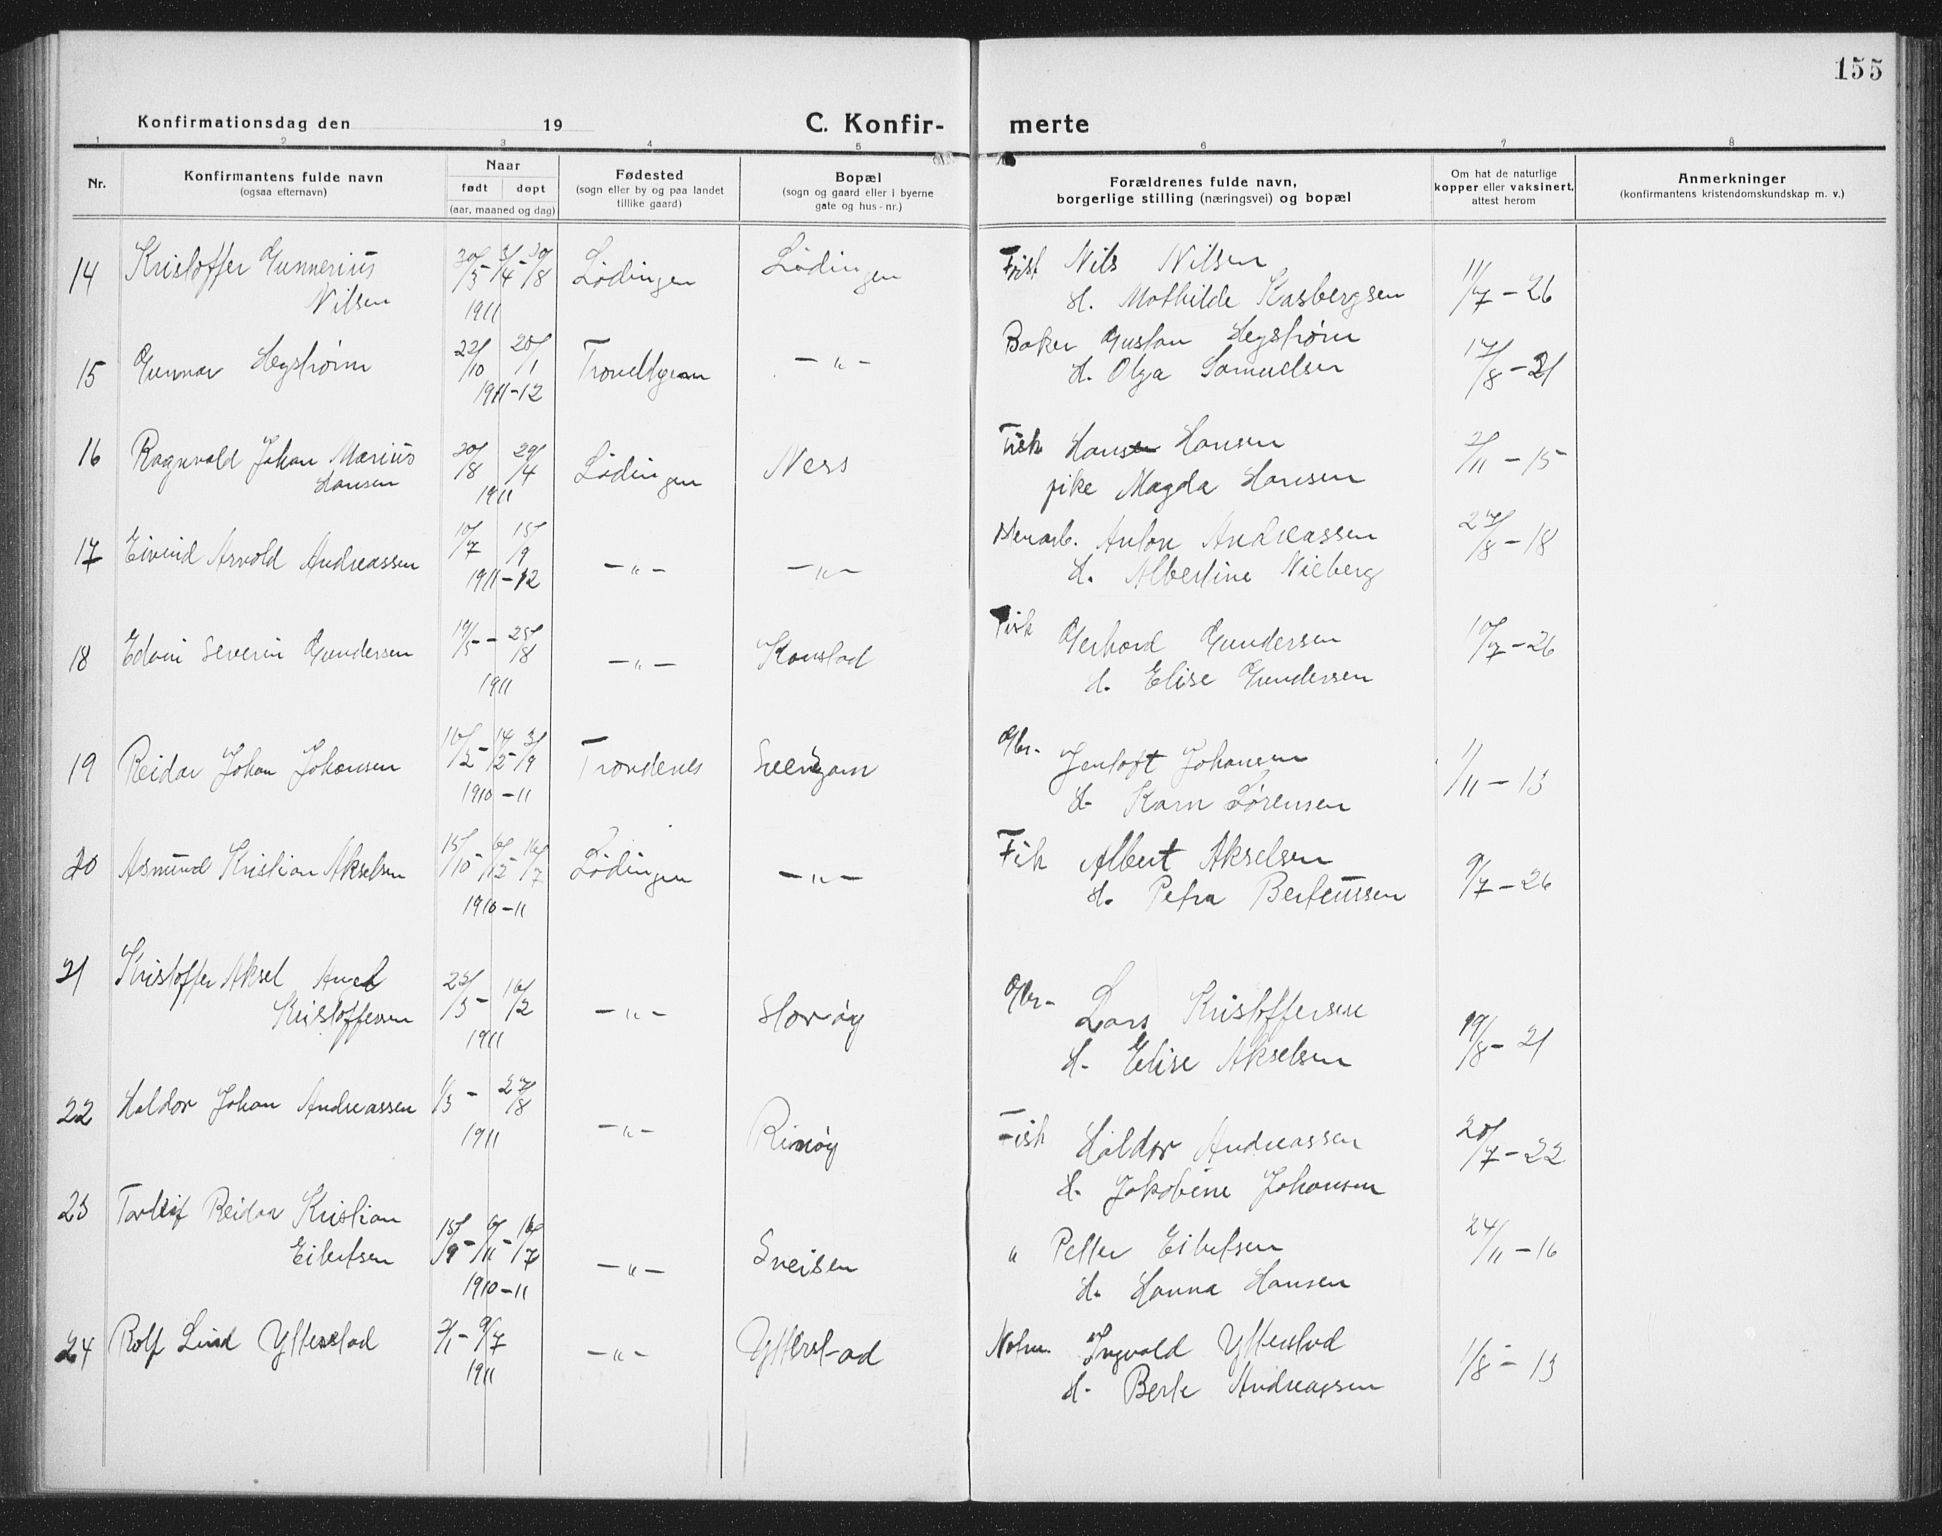 155
Konfirmationsdag den 19
C. Konfirmerte
1 2 3 4 5 6 7 8
Nr.
Konfirmantens fulde navn
(ogsaa efternavn)
Naar
født døpt
(aar, maaned og dag)
Fødested
(sogn eller by og paa landet
tillike gaard)
Bopæl
(sogn og gaard eller i byerne
gate og hus-nr.)
Forældrenes fulde navn,
borgerlige stilling (næringsvei) og bopæl
Om hat de naturlige
kopper eller vaksinert,
attest herom
Anmerkninger
(konfirmantens kristendomskundskap m. v.)
14 Kristoffer Gunnerius 30/3 - 3/4 - 20/8 Lødingen Lødingen Fisk Nils Nilsen 11/7 - 26
Nilsen 1911 H. Mathilde Kasbergsen
15 Gunnar Hegstrøm 22/10 20/1 Trondhjem - " - Baker Gustav Hegstrøm 17/8 - 21
1911-12 H. Olga Samuelsen
16 Ragnvald Johan Marius 20/8 29/4 Lødingen Ness Fisk Hans Hansen 2/11 - 15
Hansen 1911 pike Magda Hansen
17 Eivind Arvold Andreassen 10/7 15/9 - " - - " - Anton Andreassen 27/8 - 18
1911-12 H. Albertine Nieberg
18 Edvin Severin Gundersen 19/5 - 25/8 - " - Kanstad Fisk Gerhard Gundersen 10/7 - 26
1911 H. Elise Gundersen
19 Reidar Johan Johansen 16/12 - 14/12 3/9 Trondenes Svensgam Gbr. Jentoft Johansen 1/11 - 13
1910-11 H. Karn Sørensen
20 Asmund Kristian Akselsen 15/10 - 6/12 - 16/7 Lødingen - " - Fisk Albert Akselsen 9/7 - 26
1910-11 H. Petra Berteussen
21 Kristoffer Aksel 25/3 - 16/2 - " - Storøy Gbr. Lars Kristoffersen 19/8 - 21
Kristoffersen 1911 H. Elise Akselsen
22 Haldor Johan Andreassen 1/3 - 27/8 - " - Rinøy Fisk Haldor Andreassen 20/7 - 22
1911 H. Jakobine Johansen
23 Torleif Reidar Kristian 15/9 - 6/11 - 16/7 - " - Sneisen " Petter Eilertsen 24/11 - 16
Eilertsen 1910-11 H. Hanna Hansen
24 Rolf Lind Ytterstad 2/1 - 9/7 - " - Ytterstad Ingvald Ytterstad 1/8 - 13
1911 H. Berte Andreassen